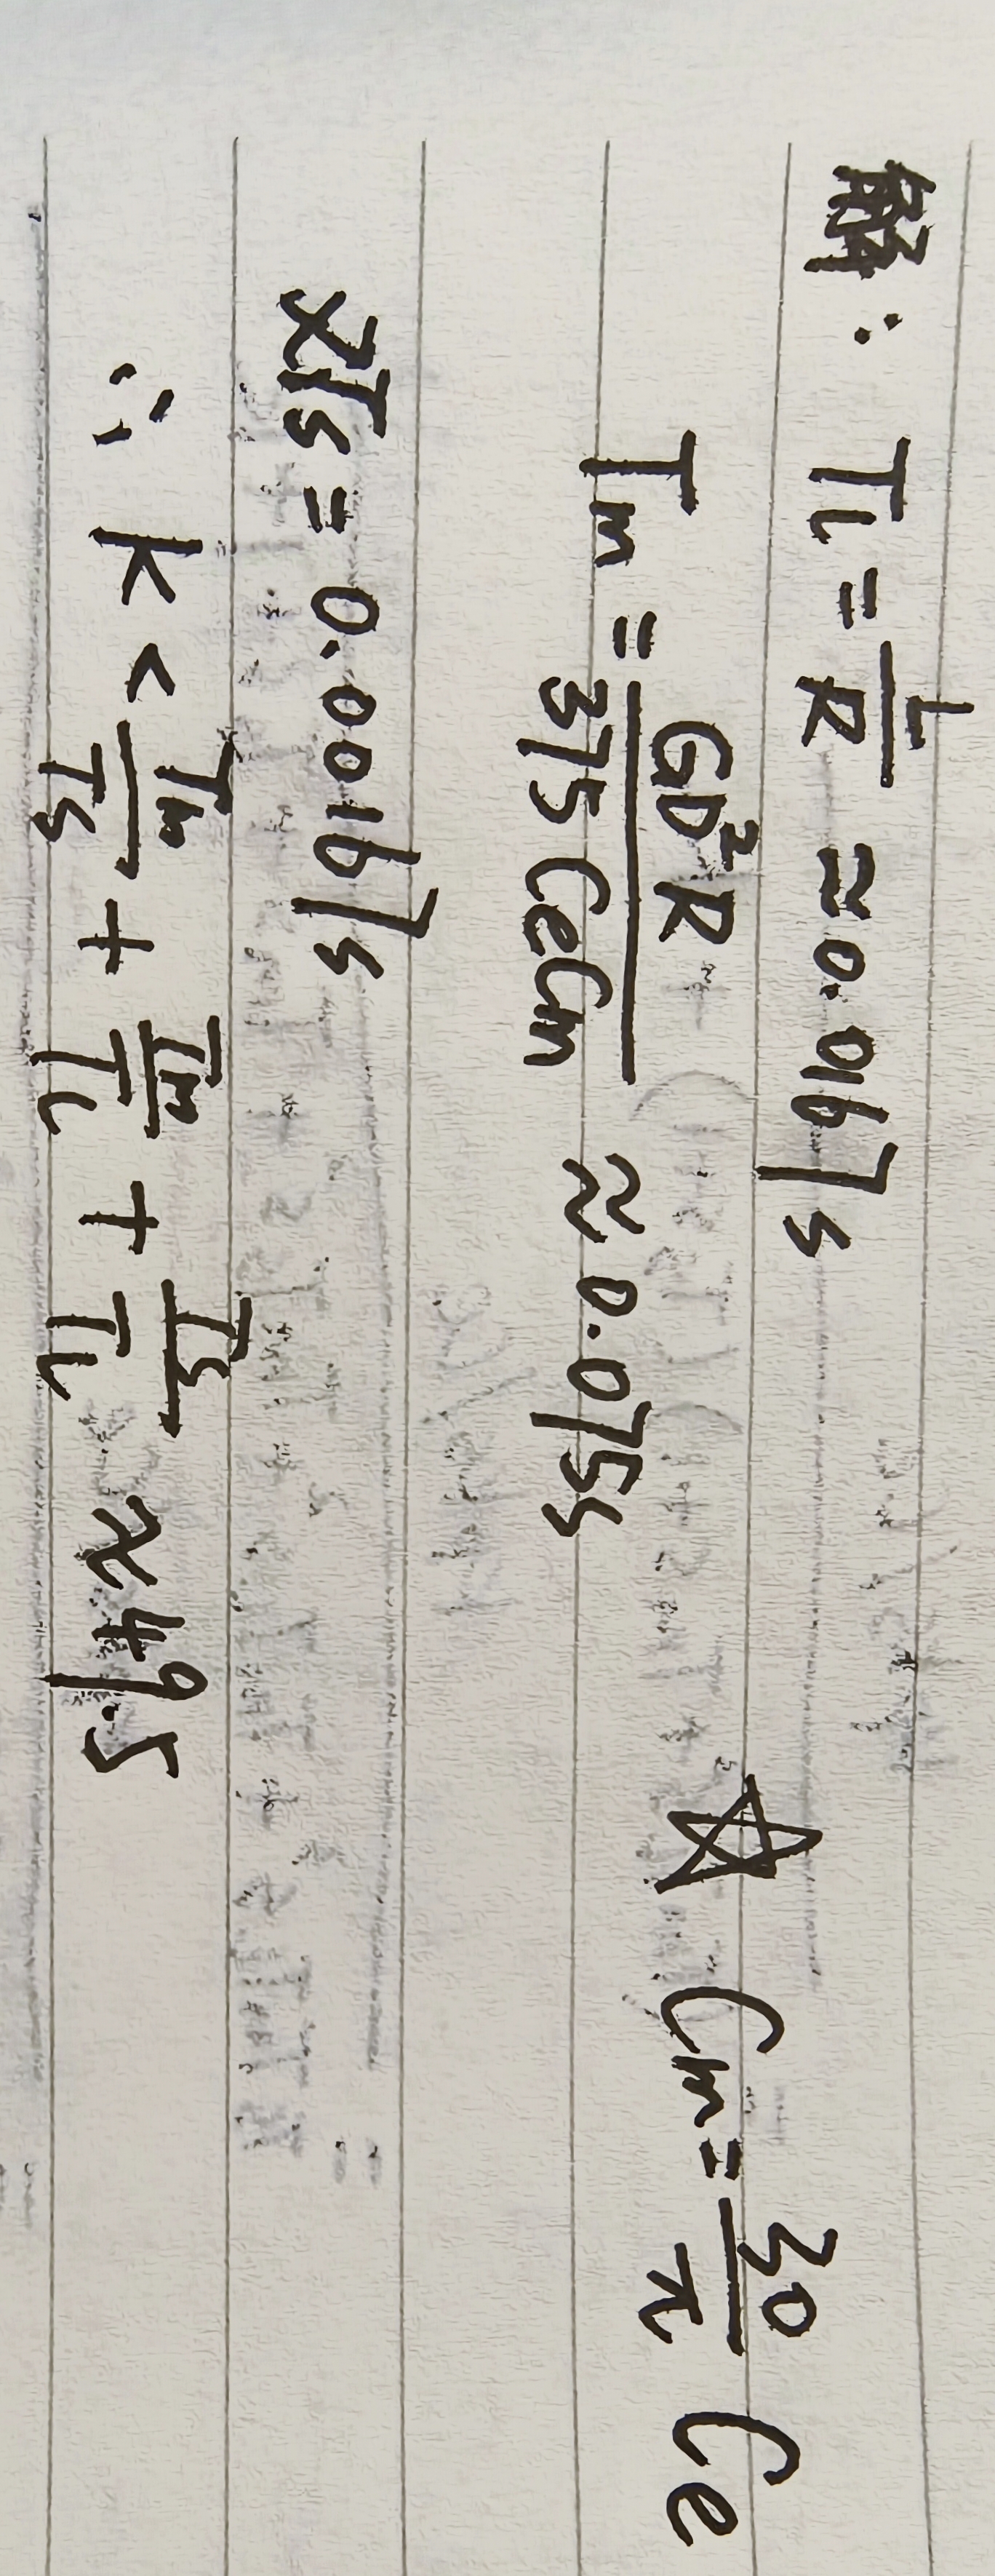 解： Tl = L/R ≈ 0.0167s
Tm = GD²R/375CeCm ≈ 0.075s ☆ Cm = 30/π Ce
对Ts = 0.00167s
∴ K < Tm/Ts + Tm/Tl + Ts/Tl ≈ 49.5